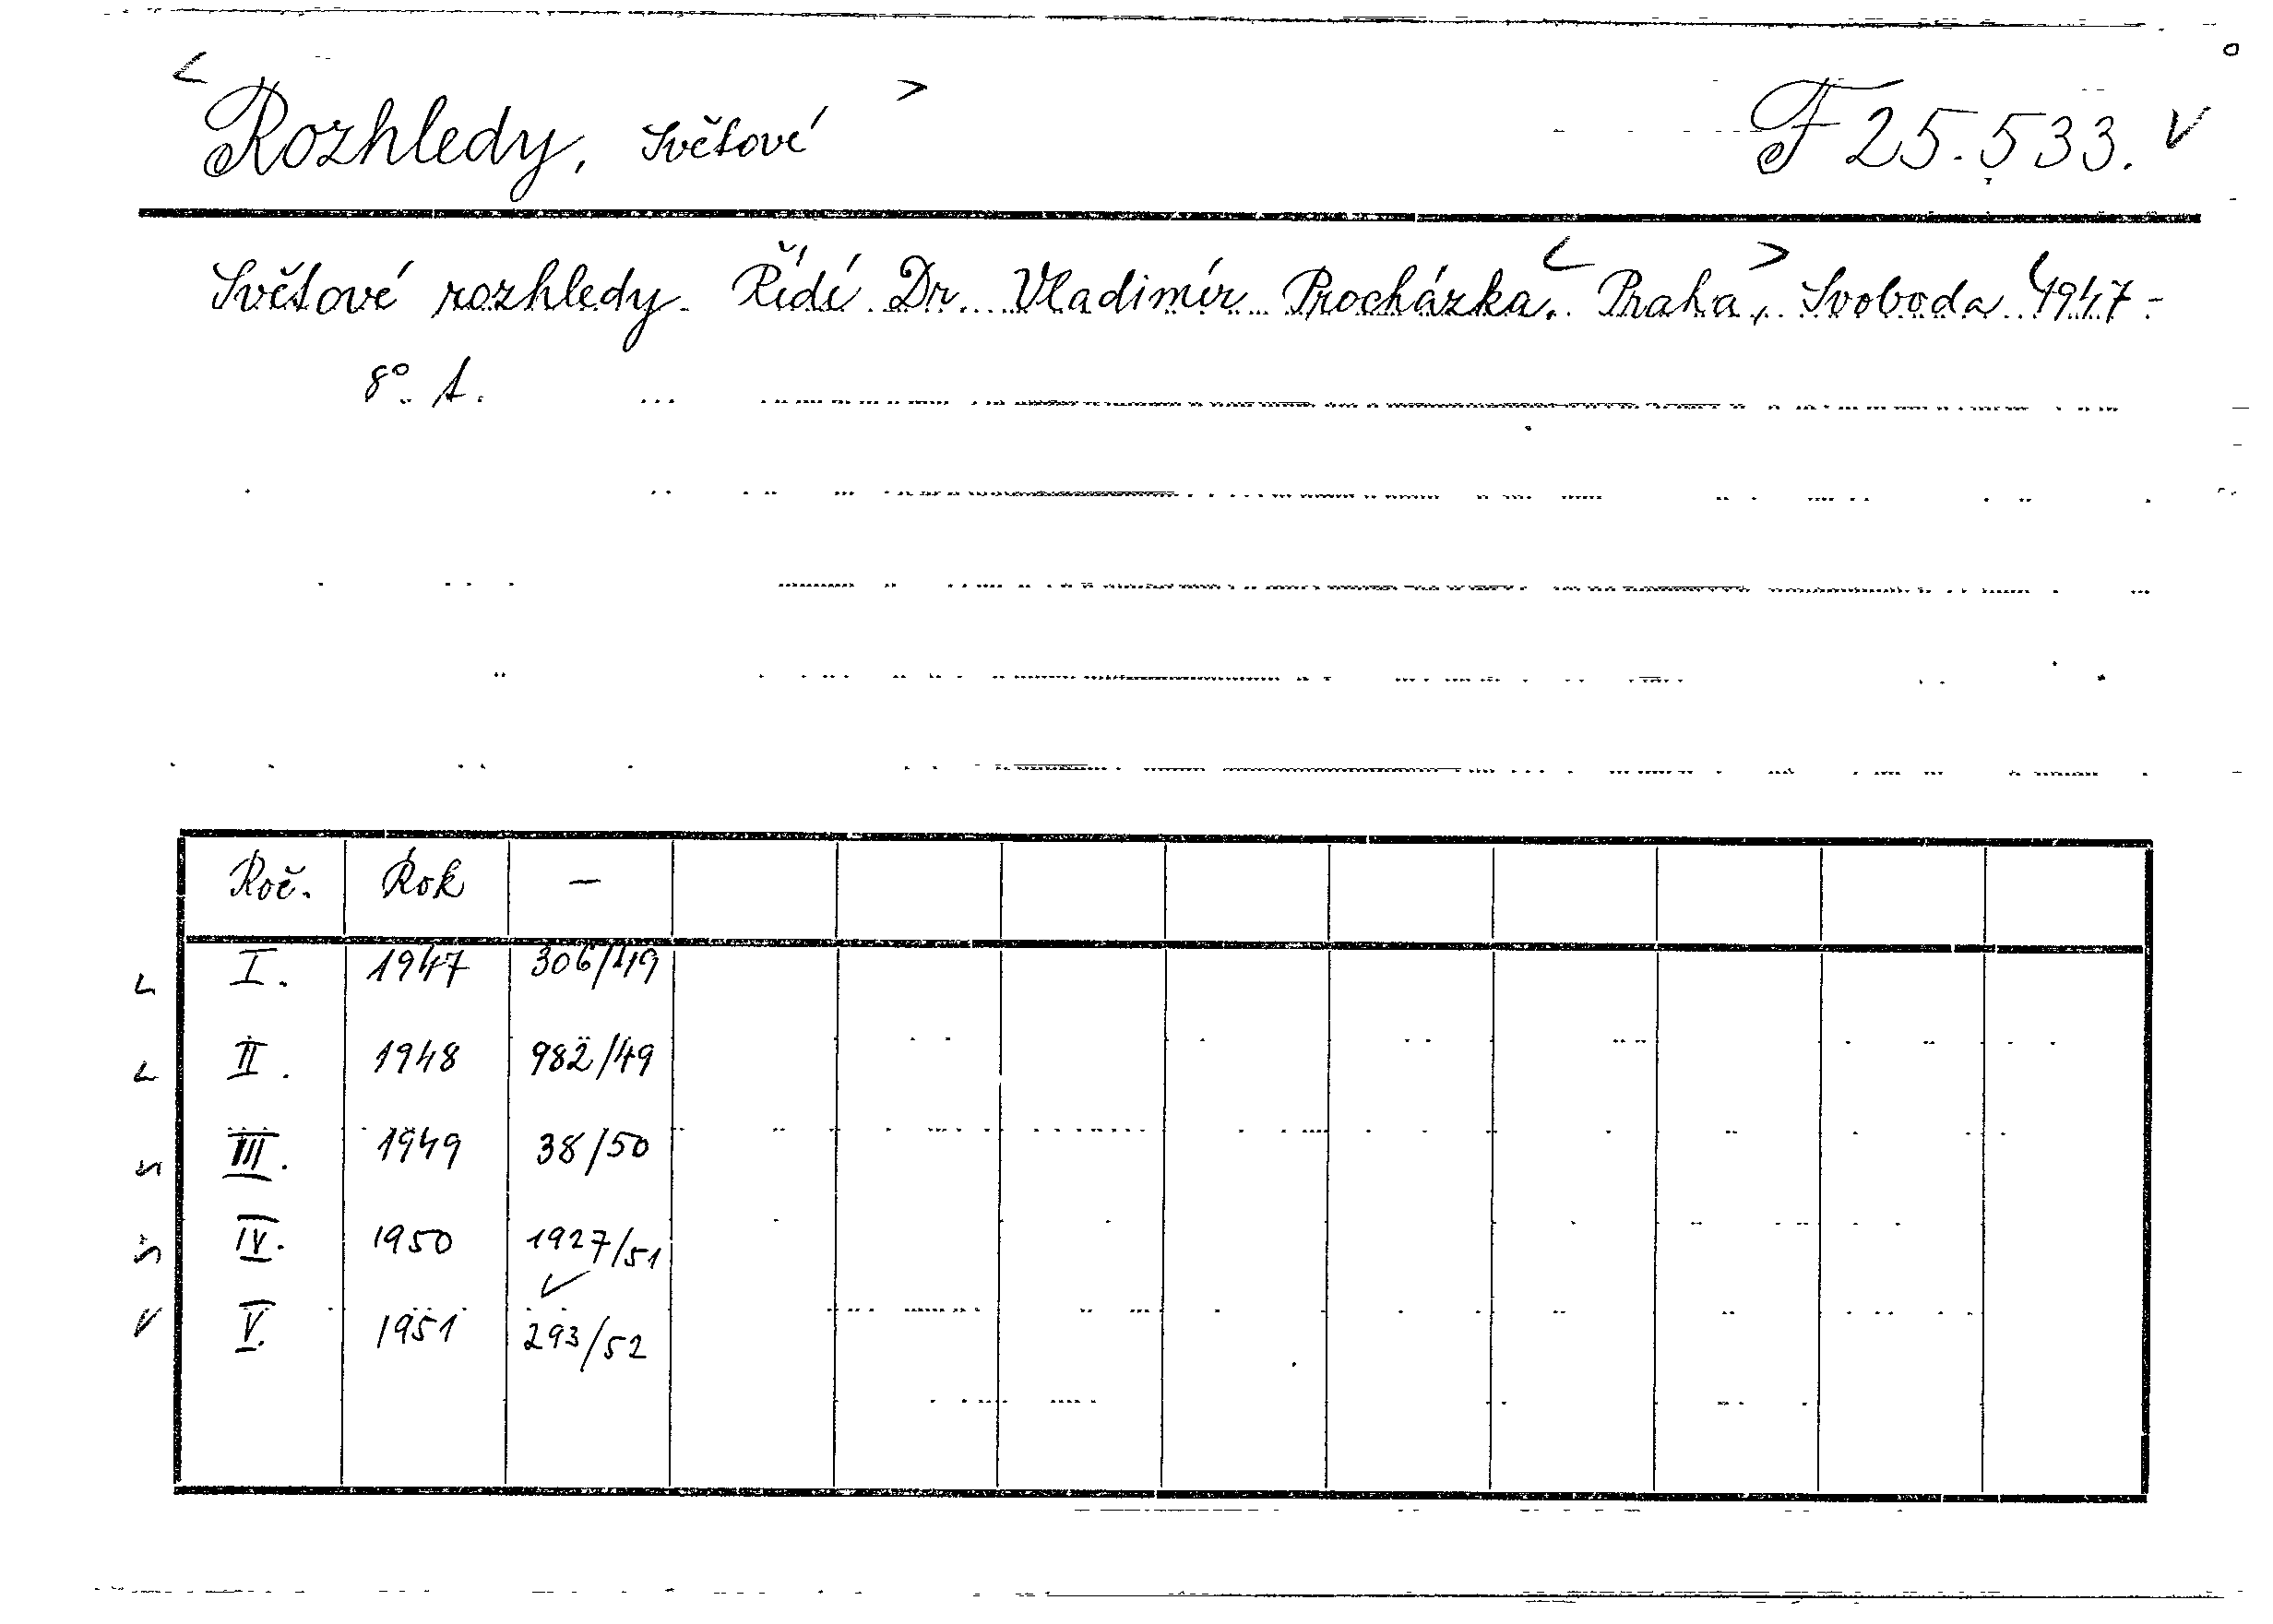 <Rozhledy, Světové> F 25.533. V
Světové rozhledy. Řídí Dr. Vladimír Procházka. <Praha>, Svoboda 1947-
8°. t.
Roč. Rok -
I. 1947 306/49
II. 1948 982/49
III. 1949 38/50
IV. 1950 1927/51
V. 1951 293/52